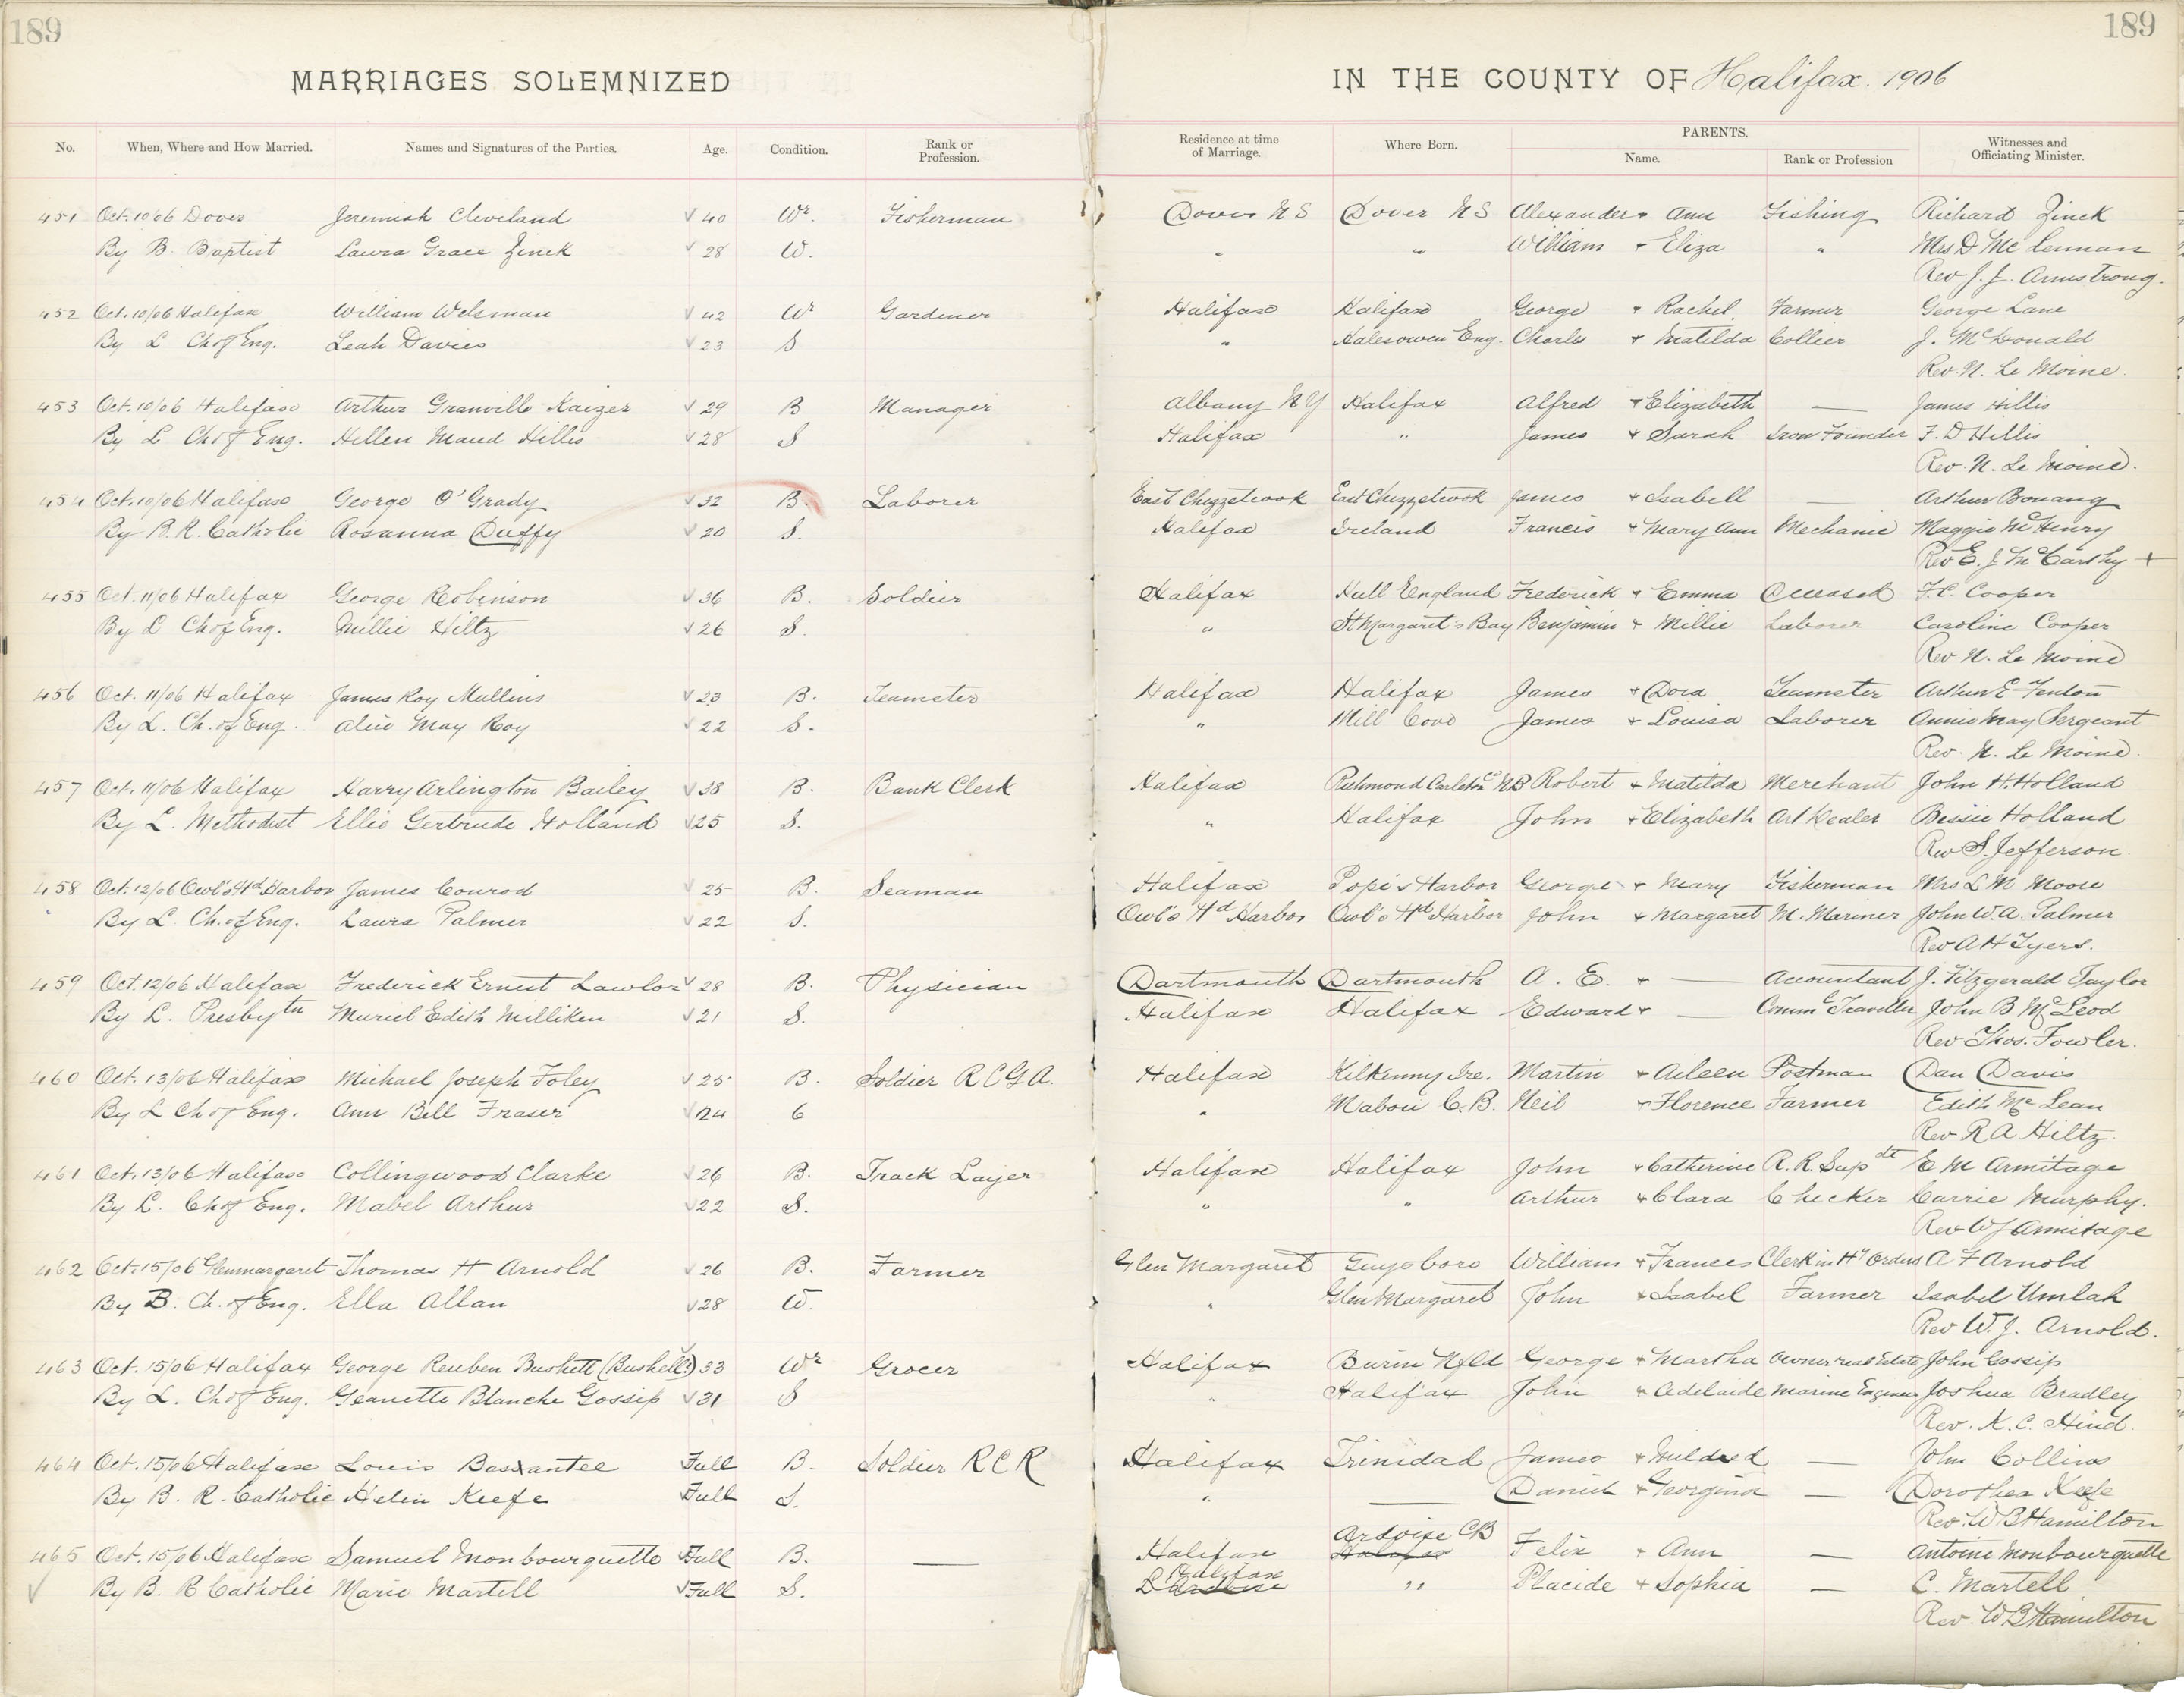 189 189
MARRIAGES SOLEMNIZED IN THE COUNTY OF Halifax. 1906
No. When, Where and How Married. Names and Signatures of the Parties. Age. Condition. Rank or Profession. Residence at time of Marriage. Where Born. PARENTS. Name. Rank or Profession Witnesses and Officiating Minister.
451 Oct. 10/06 Dover Jeremiah Cleveland 40 Wr. Fisherman Dover N S Dover N S Alexander + Ann Fishing Richard Zinck
By B. Baptist Laura Grace Zinck 28 W. " " William + Eliza " Mrs D McLennan
Rev J. J. Armstrong.
452 Oct. 10/06 Halifax William Welsman 42 Wr Gardener Halifax Halifax George + Rachel. Farmer George Lane
By L Ch of Eng. Leah Davies 23 S " Halesowen Eng. Charles + Matilda Collier J. McDonald
Rev. N. Le Moine.
453 Oct. 10/06 Halifax Arthur Granville Kaizer 29 B Manager Albany N Y Halifax Alfred + Elizabeth — James Hillis
By L Ch of Eng. Hellen Maud Hillis 28 S Halifax " James + Sarah Iron Founder F. D Hillis
Rev. N. Le Moine.
454 Oct. 10/06 Halifax George O'Grady 32 B. Laborer East Chezzetcook East Chezzetcook James + Isabell — Arthur Bonang
By B. R. Catholic Rosanna Duffy 20 S. Halifax Ireland Francis + Mary Ann Mechanic Maggie McHenry
Rev E. J. McCarthy +
455 Oct. 11/06 Halifax George Robinson 36 B. Soldier Halifax Hull England Frederick + Emma Deceased F. C. Cooper
By L Ch of Eng. Millie Hiltz 26 S. " St Margaret's Bay Benjamin + Millie Laborer Caroline Cooper
Rev. N. Le Moine
456 Oct. 11/06 Halifax James Roy Mullins 23 B. Teamster Halifax Halifax James + Dora Teamster Arthur E Fenton
By L. Ch. of Eng. Alice May Roy 22 S. " Mill Cove James + Louisa Laborer Annie May Sergeant
Rev. N. Le Moine.
457 Oct. 11/06 Halifax Harry Arlington Bailey 38 B. Bank Clerk Halifax Richmond Carleton Co NB Robert + Matilda Merchant John H. Holland
By L. Methodist Ellie Gertrude Holland 25 S. " Halifax John + Elizabeth Art Dealer Bessie Holland
Rev S. Jefferson.
458 Oct. 12/06 Owl's Hd Harbor James Conrod 25 B. Seaman Halifax Pope's Harbor George + Mary Fisherman Mrs L M Moore
By L. Ch. of Eng. Laura Palmer 22 S. Owl's Hd Harbor Owl's Hd Harbor John + Margaret M. Mariner John W. A. Palmer
Rev A H Tyers.
459 Oct. 12/06 Halifax Frederick Ernest Lawlor 28 B. Physician Dartmouth Dartmouth A. E. + — Accountant J. Fitzgerald Taylor
By L. Presbytn Muriel Edith Milliken 21 S. Halifax Halifax Edward + — Commcl Traveller John B McLeod
Rev Thos. Fowler.
460 Oct. 13/06 Halifax Michael Joseph Foley 25 B. Soldier R C G A. Halifax Kilkenny Ire. Martin + Aileen Postman Dan Davis
By L Ch of Eng. Ann Bell Fraser 24 6 " Mabou C. B. Neil + Florence Farmer Edith McLean
Rev R A Hiltz.
461 Oct. 13/06 Halifax Collingwood Clarke 26 B. Track Layer Halifax Halifax John + Catherine R. R. Supdt E M Armitage
By L. Ch of Eng. Mabel Arthur 22 S. " " Arthur + Clara Checker Carrie Murphy.
Rev W J Armitage
462 Oct. 15/06 Glenmargaret Thomas H Arnold 26 B. Farmer Glen Margaret Guysboro William + Frances Clerk in Hy Orders A F Arnold
By B. Ch. of Eng. Ella Allan 28 W. " Glen Margaret John + Isabel Farmer Isabel Umlah
Rev W. J. Arnold.
463 Oct. 15/06 Halifax George Reuben Bushett (Bushell?) 33 Wr Grocer Halifax Burin Nfld George + Martha Owner real Estate John Gossip
By L. Ch of Eng. Geanette Blanche Gossip 31 S " Halifax John + Adelaide Marine Engineer Joshua Bradley
Rev. K. C. Hind.
464 Oct. 15/06 Halifax Louis Bassantee Full B. Soldier R C R Halifax Trinidad James + Mildred — John Collins
By B. R. Catholic Helen Keefe Full S. " — Daniel + Georgina — Dorothea Keefe
Rev. W B Hamilton
465 Oct. 15/06 Halifax Samuel Monbourquette Full B. — Halifax Ardoise CB Halifax Felix + Ann — Antoine Monbourquette
By B. R Catholic Marie Martell Full S. Halifax L'Ardoise " Placide + Sophia — C. Martell
Rev. W B Hamilton